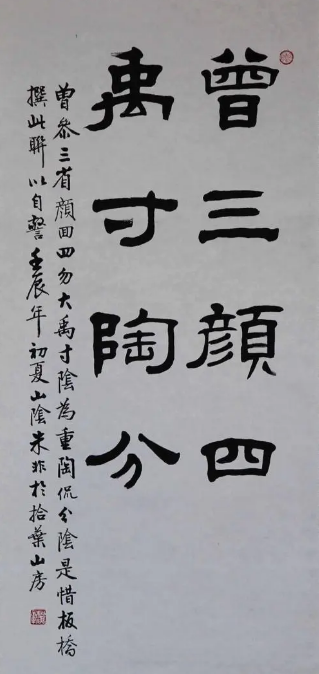 曾三顔四
禹寸陶分
曾參三省顔回四勿大禹寸陰為重陶侃分陰是惜板橋
撰此聯以自警壬辰年初夏山陰米非於拾葉山房